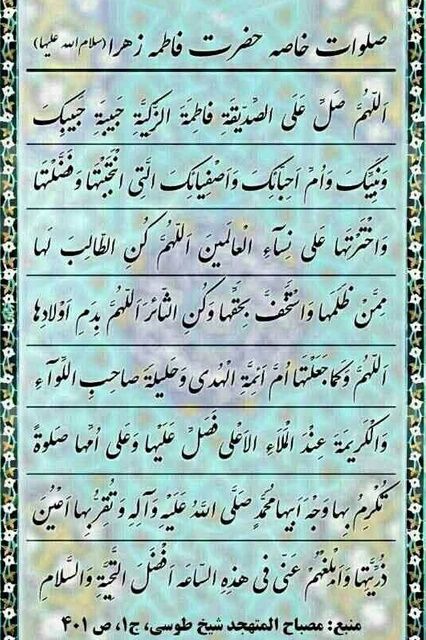 صلوات خاصه حضرت فاطمه زهرا (سلام الله علیها)
اَللّهُمَّ صَلِّ عَلَی الصِّدّیقَةِ فاطِمَةَ الزَّکِیَّةِ حَبیبَةِ حَبیبِکَ
وَنَبِیِّکَ وَاُمِّ اَحِبّائِکَ وَاَصْفِیائِکَ الَّتِی انْتَجَبْتَها وَفَضَّلْتَها
وَاخْتَرْتَها عَلی نِسآءِ الْعالَمینَ اَللّهُمَّ کُنِ الطّالِبَ لَها
مِمَّنْ ظَلَمَها وَاسْتَخَفَّ بِحَقِّها وَکُنِ الثّائِرَ اَللّهُمَّ بِدَمِ اَوْلادِها
اَللّهُمَّ وَکَما جَعَلْتَها اُمَّ اَئِمَّةِ الْهُدی وَحَلیلَةَ صاحِبِ اللِّوآءِ
وَالْکَریمَةَ عِنْدَ الْمَلَاءِ الاَعْلی فَصَلِّ عَلَیْها وَعَلی اُمِّها صَلوةً
تُکْرِمُ بِها وَجْهَ اَبیها مُحَمَّدٍ صَلَّی اللّهُ عَلَیْهِ وَآلِهِ وَتُقِرُّ بِها اَعْیُنَ
ذُرِّیَّتِها وَاَبْلِغْهُمْ عَنّی فی هذِهِ السّاعَةِ اَفْضَلَ التَّحِیَّةِ وَالسَّلامِ
منبع: مصباح المتهجد شیخ طوسی، ج۱، ص ۴۰۱